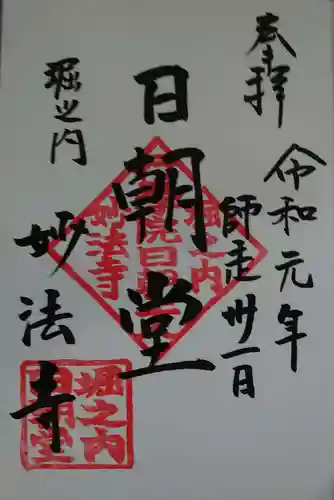 奉拝
令和元年
師走卅一日
日朝堂
堀之内
妙法寺
堀之内
日朝堂
妙法寺
堀之内
日朝堂